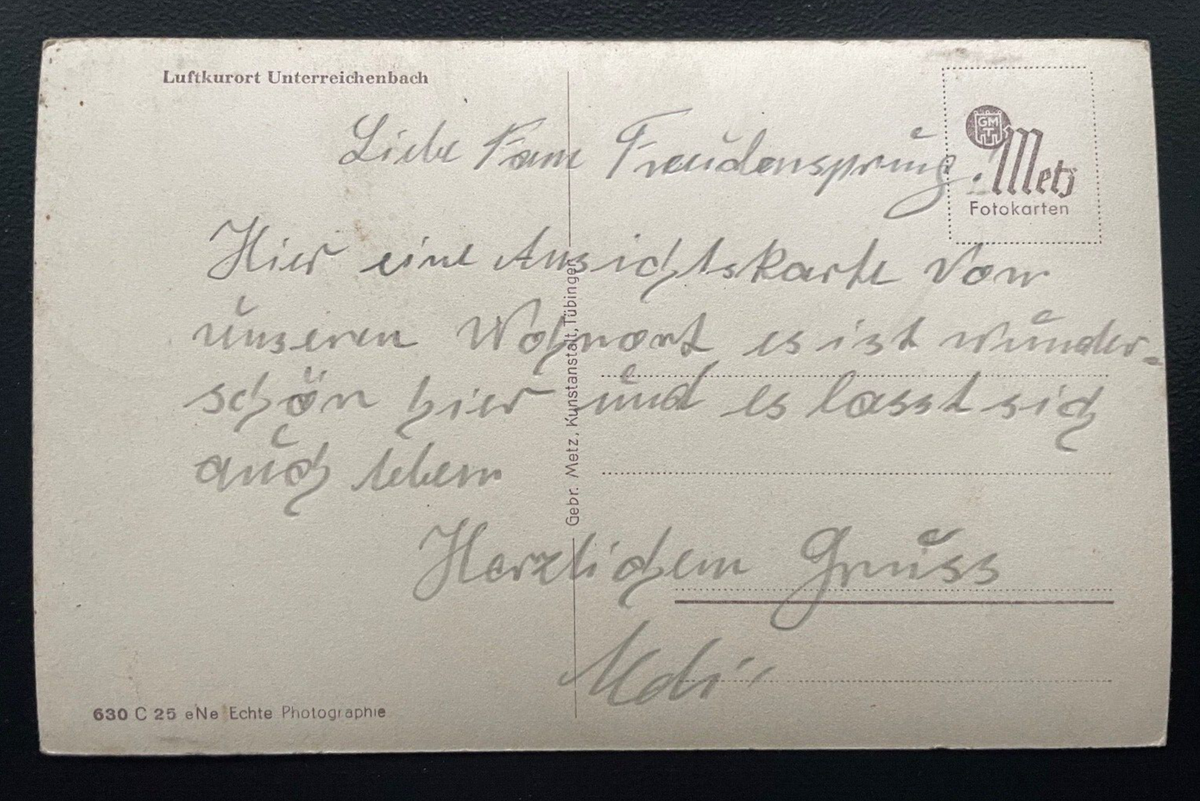 Luftkurort Unterreichenbach
GMT
Metz
Fotokarten
Liebe Fam Freudensprung.
Hier eine Ansichtskarte von
unseren Wohnort es ist wunder-
schön hier und es lässt sich
auch leben
Herzlichem Gruss
Gebr. Metz, Kunstanstalt, Tübingen
630 C 25 eNe Echte Photographie